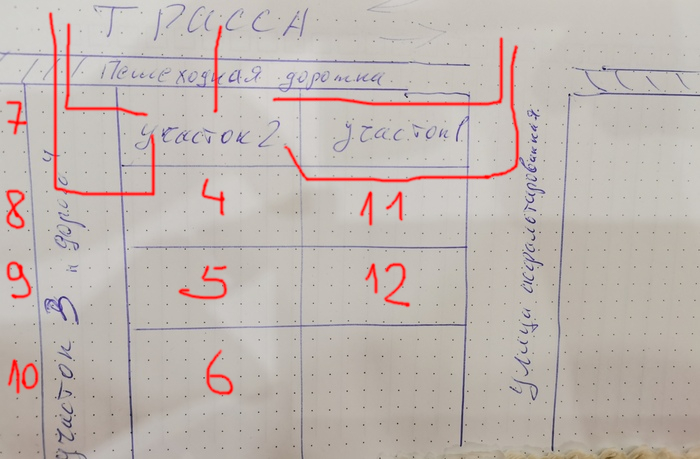 ТРАССА
Пешеходная дорожка
7
участок 2
участок 1
8
4
11
участок 3 и дорога
Улица асфальтированная
9
5
12
10
6